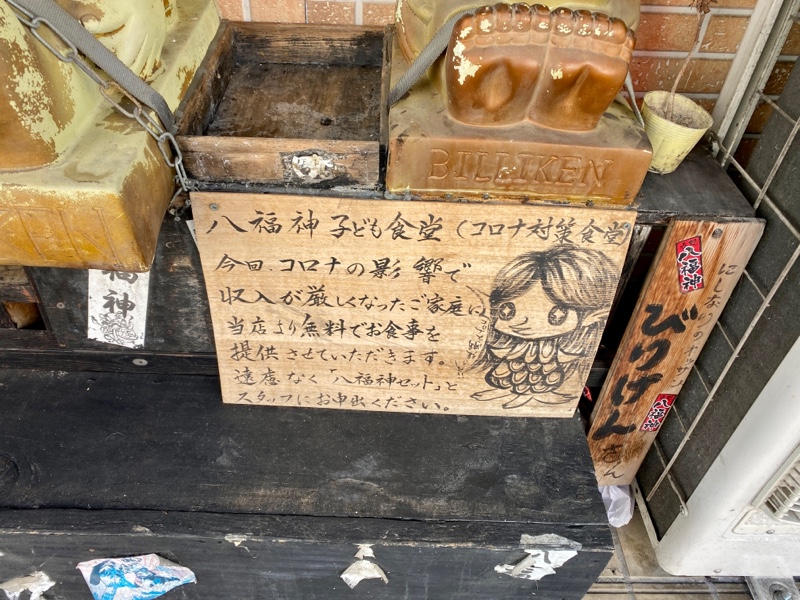 BILLIKEN
福神
八福神子ども食堂(コロナ対策食堂)
今回、コロナの影響で
収入が厳しくなったご家庭に
当店より無料でお食事を
提供させていただきます。
遠慮なく「八福神セット」と
スタッフにお申出ください。
八福神
にしなりのオッサン
びりけんさん
八福神